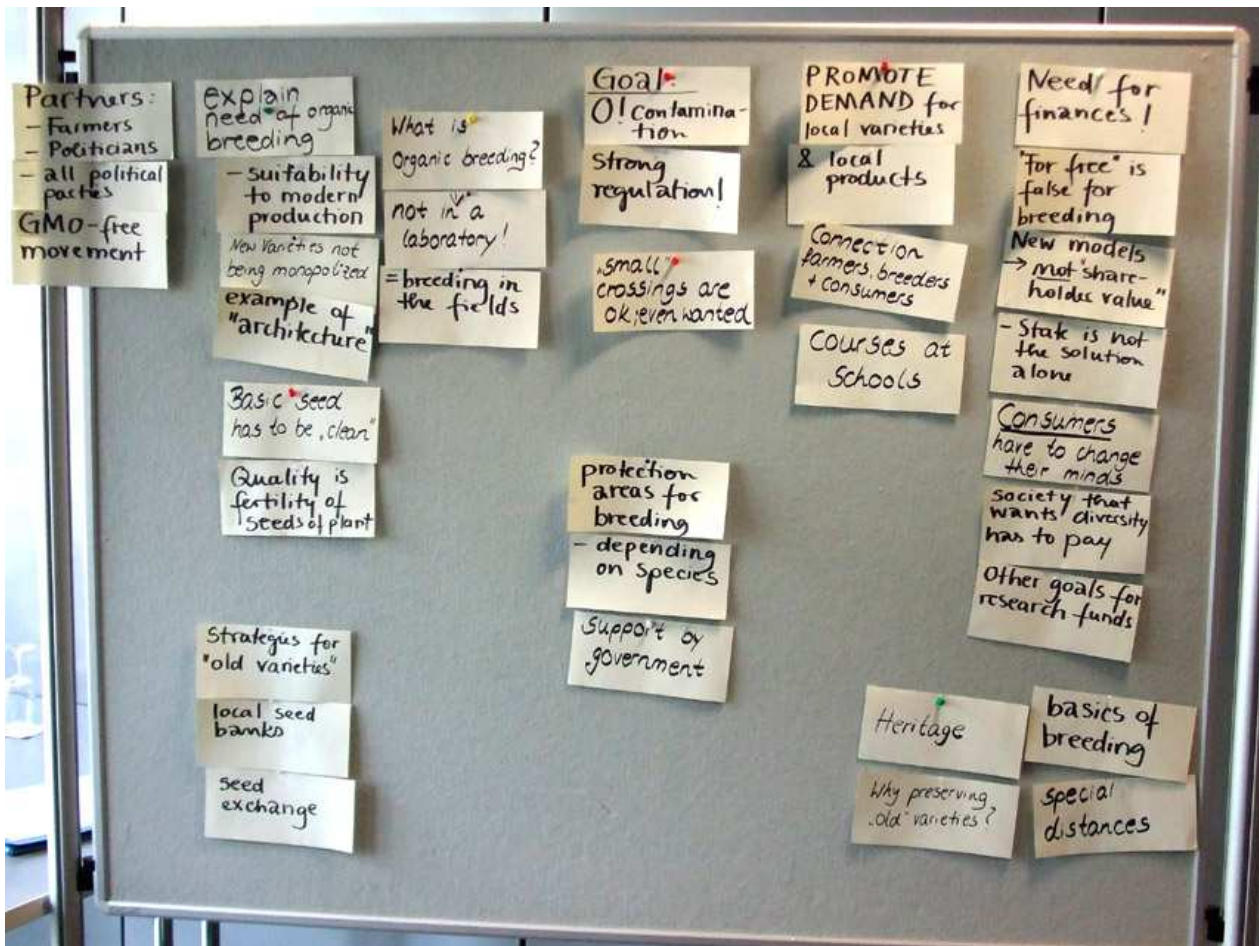 Partners:
- Farmers
- Politicians
- all political
parties
GMO-free
movement
explain
need of organic
breeding
- suitability
to modern
production
New varieties not
being monopolized
example of
"architecture"
Basic seed
has to be „clean"
Quality is
fertility of
seeds of plant
Strategies for
"old varieties"
local seed
banks
seed
exchange
What is
organic breeding?
not in a
laboratory!
= breeding in
the fields
Goal:
0! Contamina-
tion
Strong
regulation!
„small"
crossings are
ok, even wanted
protection
areas for
breeding
- depending
on species
support by
government
PROMOTE
DEMAND for
local varieties
& local
products
Connection
farmers, breeders
+ consumers
Courses at
Schools
Need for
finances!
"for free" is
false for
breeding
New models
→ not "share-
holder value"
- State is not
the solution
alone
Consumers
have to change
their minds
society that
wants diversity
has to pay
Other goals for
research funds
Heritage
Why preserving
„old" varieties?
basics of
breeding
special
distances